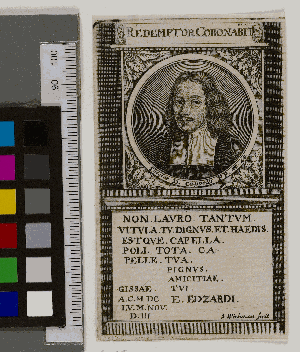 REDEMPTOR CORONABIT
NON. LAVRO TANTVM.
VITVLA. TV. DIGNVS. ET. HAEDIS.
ESTQVE. CAPELLA.
POLI. TOTA. CA-
PELLE. TVA.
PIGNVS.
AMICITIAE.
GISSAE. TVI
A.C.M DC E. EDZARDI.
LV. M. NOV.
D. III